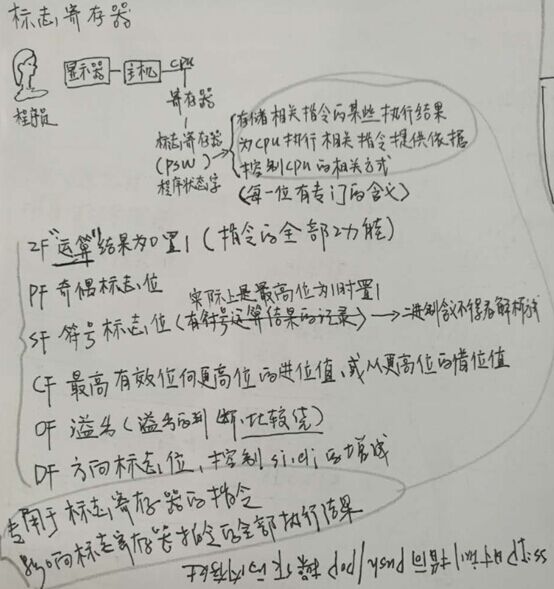 标志寄存器
程序员
显示器 主机 CPU
寄存器
标志寄存器
(PSW)
程序状态字
存储相关指令的某些执行结果
为CPU执行相关指令提供依据
控制CPU的相关方式
(每一位有专门的含义)
ZF "运算"结果为0置1 (指令的全部功能)
PF 奇偶标志位
实际上是最高位为1时置1
SF 符号标志位 (有符号运算结果的记录) → 二进制含义
CF 最高有效位向更高位的进位值,或从更高位的借位值
OF 溢出 (溢出的判断,比较
DF 方向标志位,控制si,di的增减
专用于标志寄存器的指令
影响向标志寄存器指令的全部执行结果
ss:sp时刻指向 push/pop 操作的内存地址